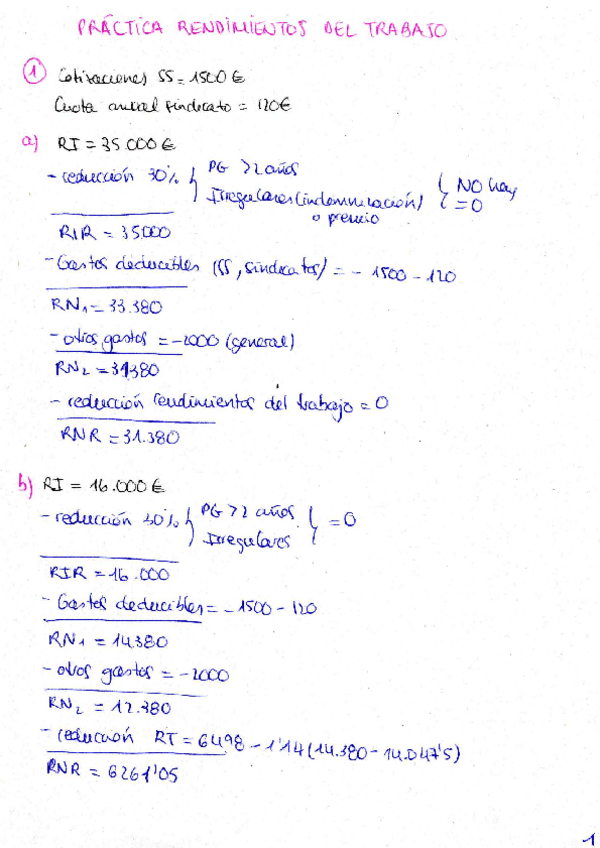 PRÁCTICA RENDIMIENTOS DEL TRABAJO
① Cotizaciones SS = 1500 €
Cuota anual sindicato = 120€
a) RI = 35.000 €
- reducción 30% } PG >2 años
Irregulares (indemnización) o premio } NO hay = 0
RIR = 35.000
- Gastos deducibles (SS, sindicatos) = - 1500 - 120
RN1 = 33.380
- otros gastos = -2000 (general)
RN2 = 31380
- reducción rendimientos del trabajo = 0
RNR = 31.380
b) RI = 16.000 €
- reducción 30% } PG >2 años
Irregulares } = 0
RIR = 16.000
- Gastos deducibles = - 1500 - 120
RN1 = 14.380
- otros gastos = -2000
RN2 = 12.380
- reducción RT = 6498 - 1'14 (14.380 - 14.047'5)
RNR = 6261'05
1